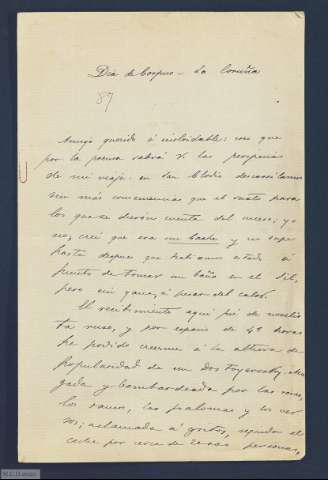 Día de Corpus – La Coruña
87
Amigo querido é inolvidable: creo que
por la prensa sabrá V. las peripecias
de mi viaje: en San Clodio descarrilamos
sin más consecuencias que el susto para
los que se dieron cuenta del suceso; yo
no; creí que era un bache y no supe
hasta después que habíamos estado á
punto de tomar un baño en el Sil,
pero sin ganas, á pesar del calor.
El recibimiento aquí fué de
ruso, y por espacio de 48 horas
he podido creerme á la altura de
popularidad de un Dostoyewsky:
gada y bombardeada por las rosas,
los ramos, las palomas y los ver
sos; aclamada á gritos, seguido el
coche por cerca de personas,